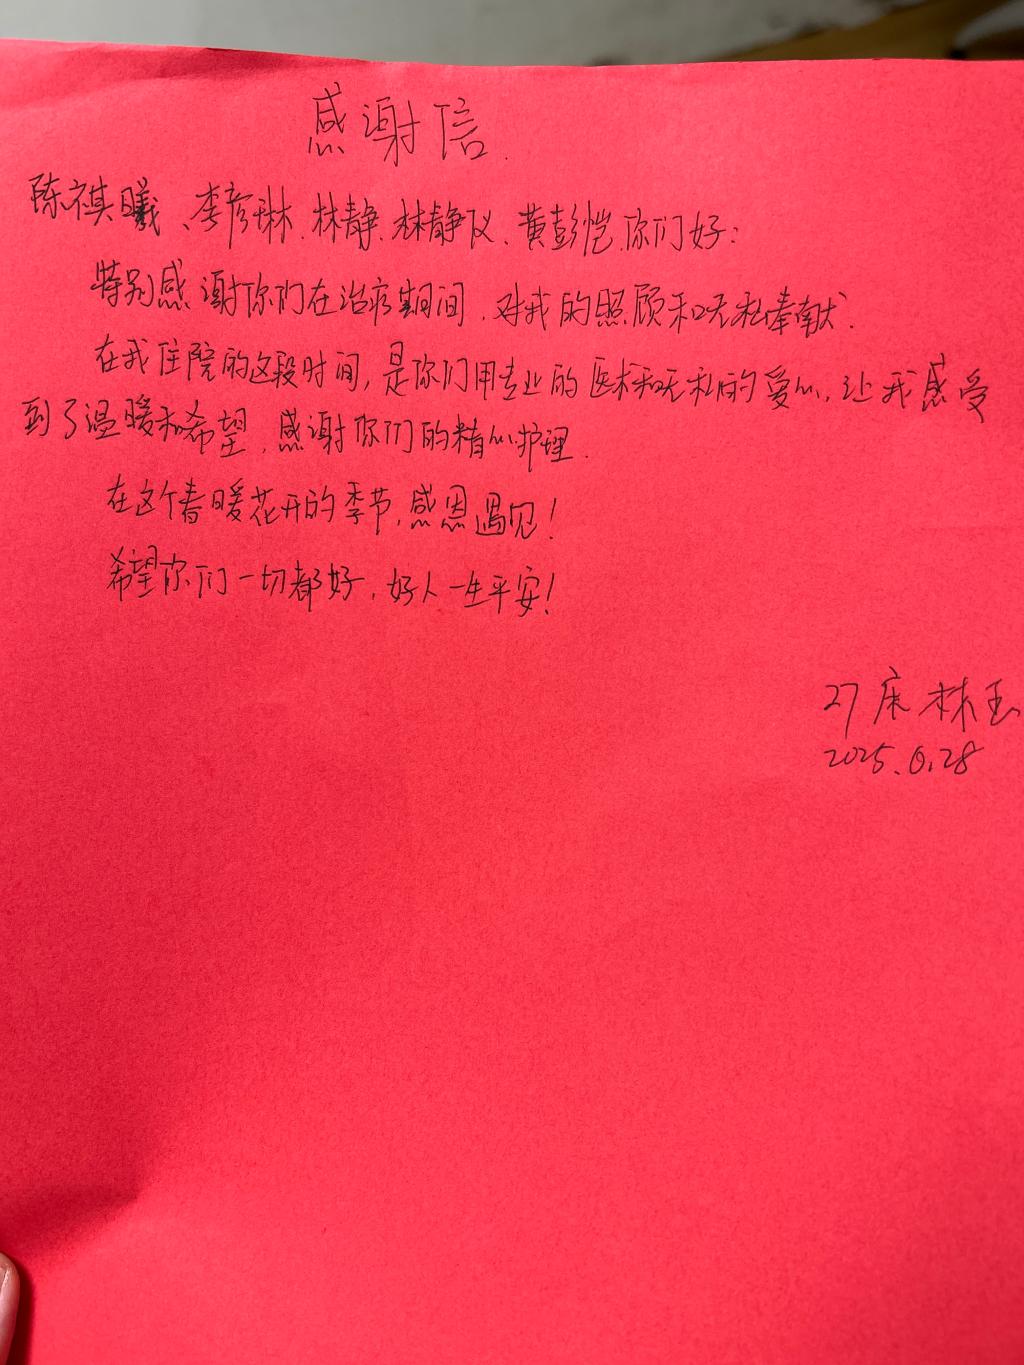 感谢信.
陈祺曦、李彦琳、林静、林静仪、黄彭恺、你们好：
特别感谢你们在治疗期间，对我的照顾和无私奉献.
在我住院的这段时间，是你们用专业的医术和无私的爱心，让我感受
到了温暖和希望，感谢你们的精心护理.
在这个春暖花开的季节，感恩遇见！
希望你们一切都好，好人一生平安！
27床 林玉
2025.0.28